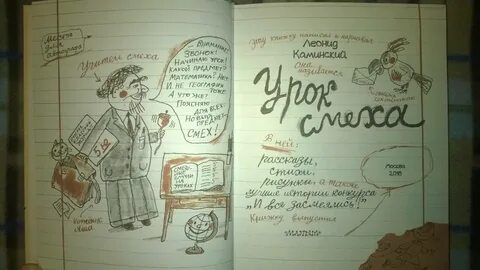 Место
для
автографа
Учитель смеха
— Внимание!
Звонок!
Начинаю урок!
Какой предмет?
Математика? Нет!
И не география
тоже.
А что же?
Поясняю
для всех:
Новый пред-
мет —
СМЕХ!
Котёнок
Яша
Эту книжку написал и нарисовал
Леонид
Каминский
Она
называется
Урок
смеха
В ней:
рассказы,
стихи,
рисунки, а также
лучшие истории конкурса
"И все засмеялись!"
Книжку выпустил
Москва